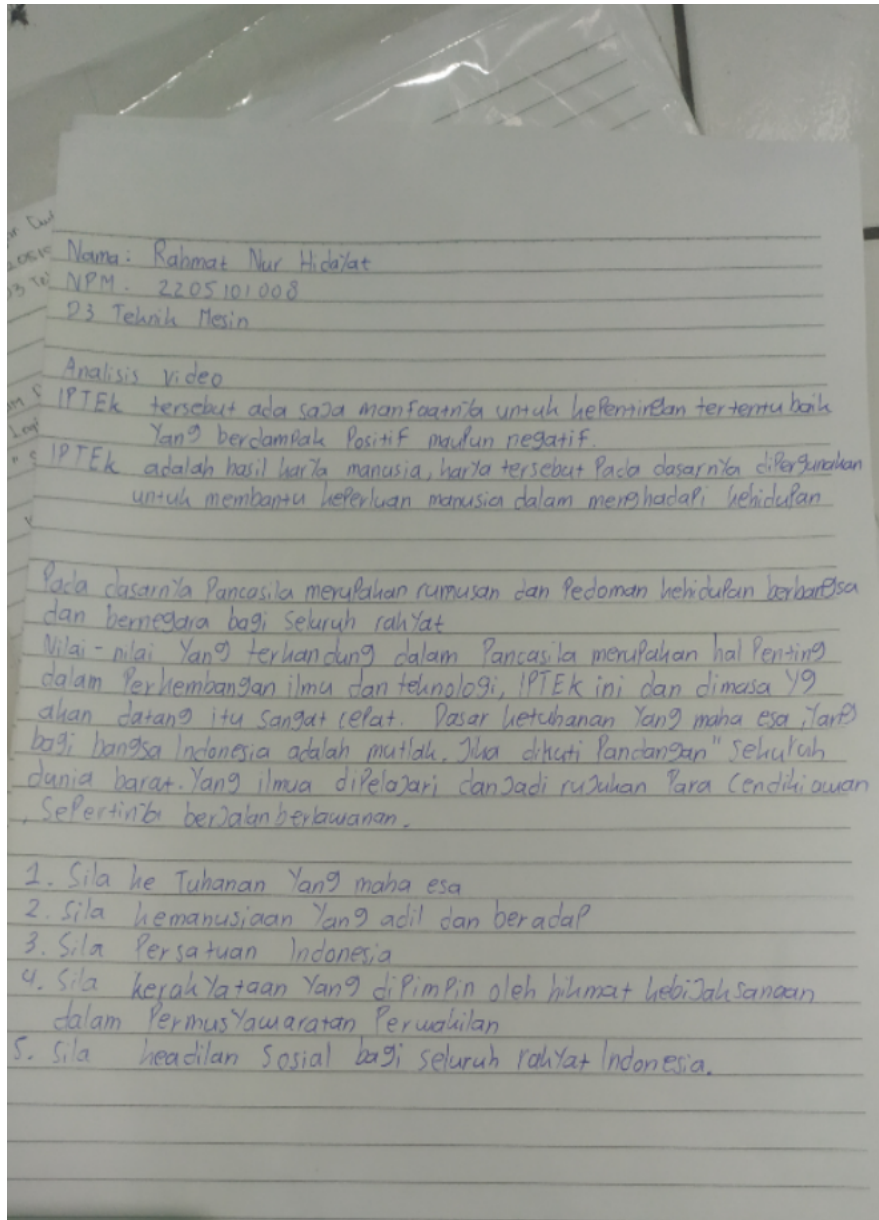 Nama: Rahmat Nur Hidayat
NPM. 2205101008
D3 Teknik Mesin
Analisis video
IPTEK tersebut ada saja manfaatnya untuk kepentingan tertentu baik
Yang berdampak Positif maupun negatif.
IPTEK adalah hasil karya manusia, karya tersebut Pada dasarnya dipergunakan
untuk membantu keperluan manusia dalam menghadapi kehidupan
Pada dasarnya Pancasila merupakan rumusan dan Pedoman kehidupan berbangsa
dan bernegara bagi seluruh rakyat
Nilai - nilai Yang terkandung dalam Pancasila merupakan hal Penting
dalam Perkembangan ilmu dan teknologi, IPTEK ini dan dimasa Yg
akan datang itu sangat cepat. Dasar ketuhanan Yang maha esa, Yang
bagi bangsa Indonesia adalah mutlak. Jika dikuti Pandangan" sekuruh
dunia barat. Yang ilmua dipelajari dan Jadi rujukan Para Cendikiawan
, Sepertinya berjalan berlawanan.
1. Sila ke Tuhanan Yang maha esa
2. Sila kemanusiaan Yang adil dan beradap
3. Sila Persatuan Indonesia
4. Sila kerakyataan Yang dipimpin oleh hikmat kebijaksanaan
dalam Permusyawaratan Perwakilan
5. Sila keadilan Sosial bagi seluruh rakyat Indonesia.